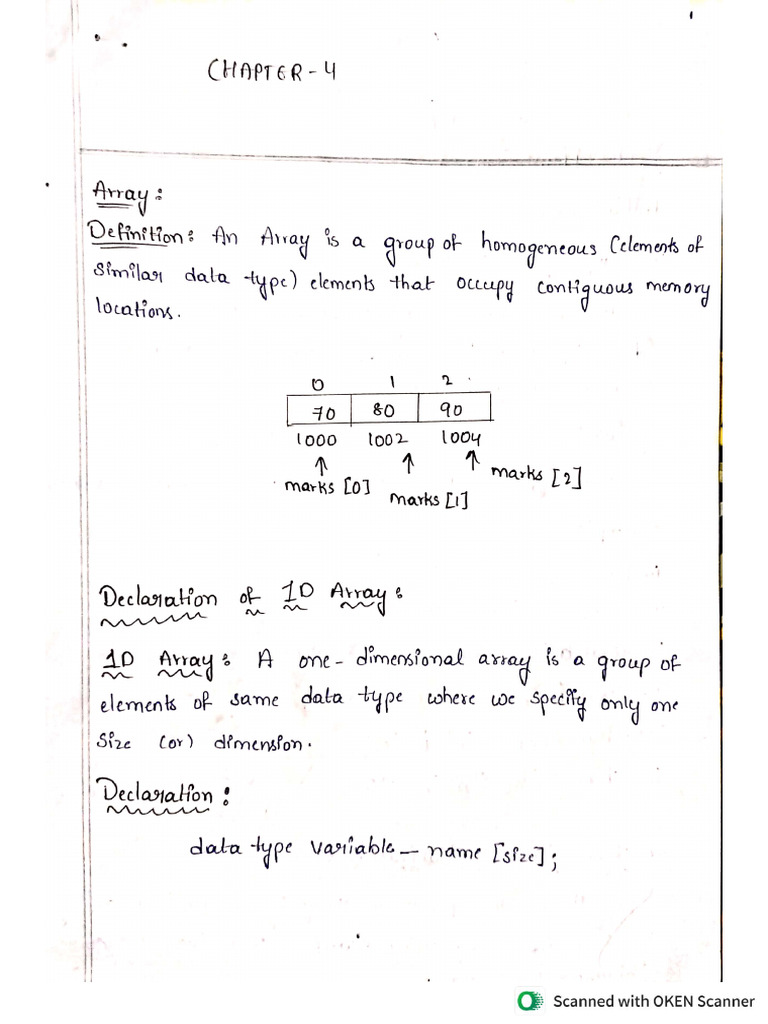 CHAPTER-4
Array:
Definition: An Array is a group of homogeneous (elements of
similar data type) elements that occupy contiguous memory
locations.
0 1 2
70 80 90
1000 1002 1004
marks [0] marks [1] marks [2]
Declaration of 1D Array:
1D Array: A one-dimensional array is a group of
elements of same data type where we specify only one
size (or) dimension.
Declaration:
data type variable_name [size];
Scanned with OKEN Scanner